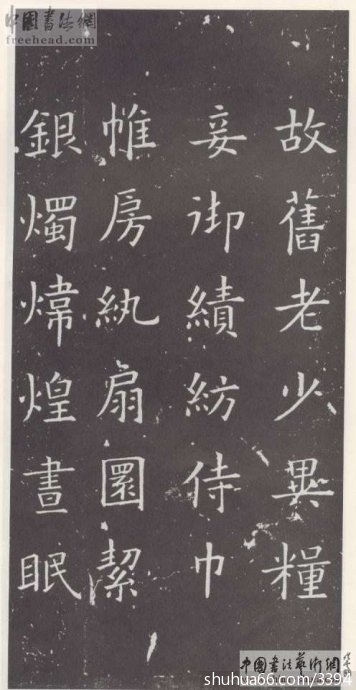 中国書法網
freehead.com
故舊老少異糧
妾御績紡侍巾
帷房紈扇圓絜
銀燭煒煌晝眠
中國書法藝術網
shuhua66.com/3394